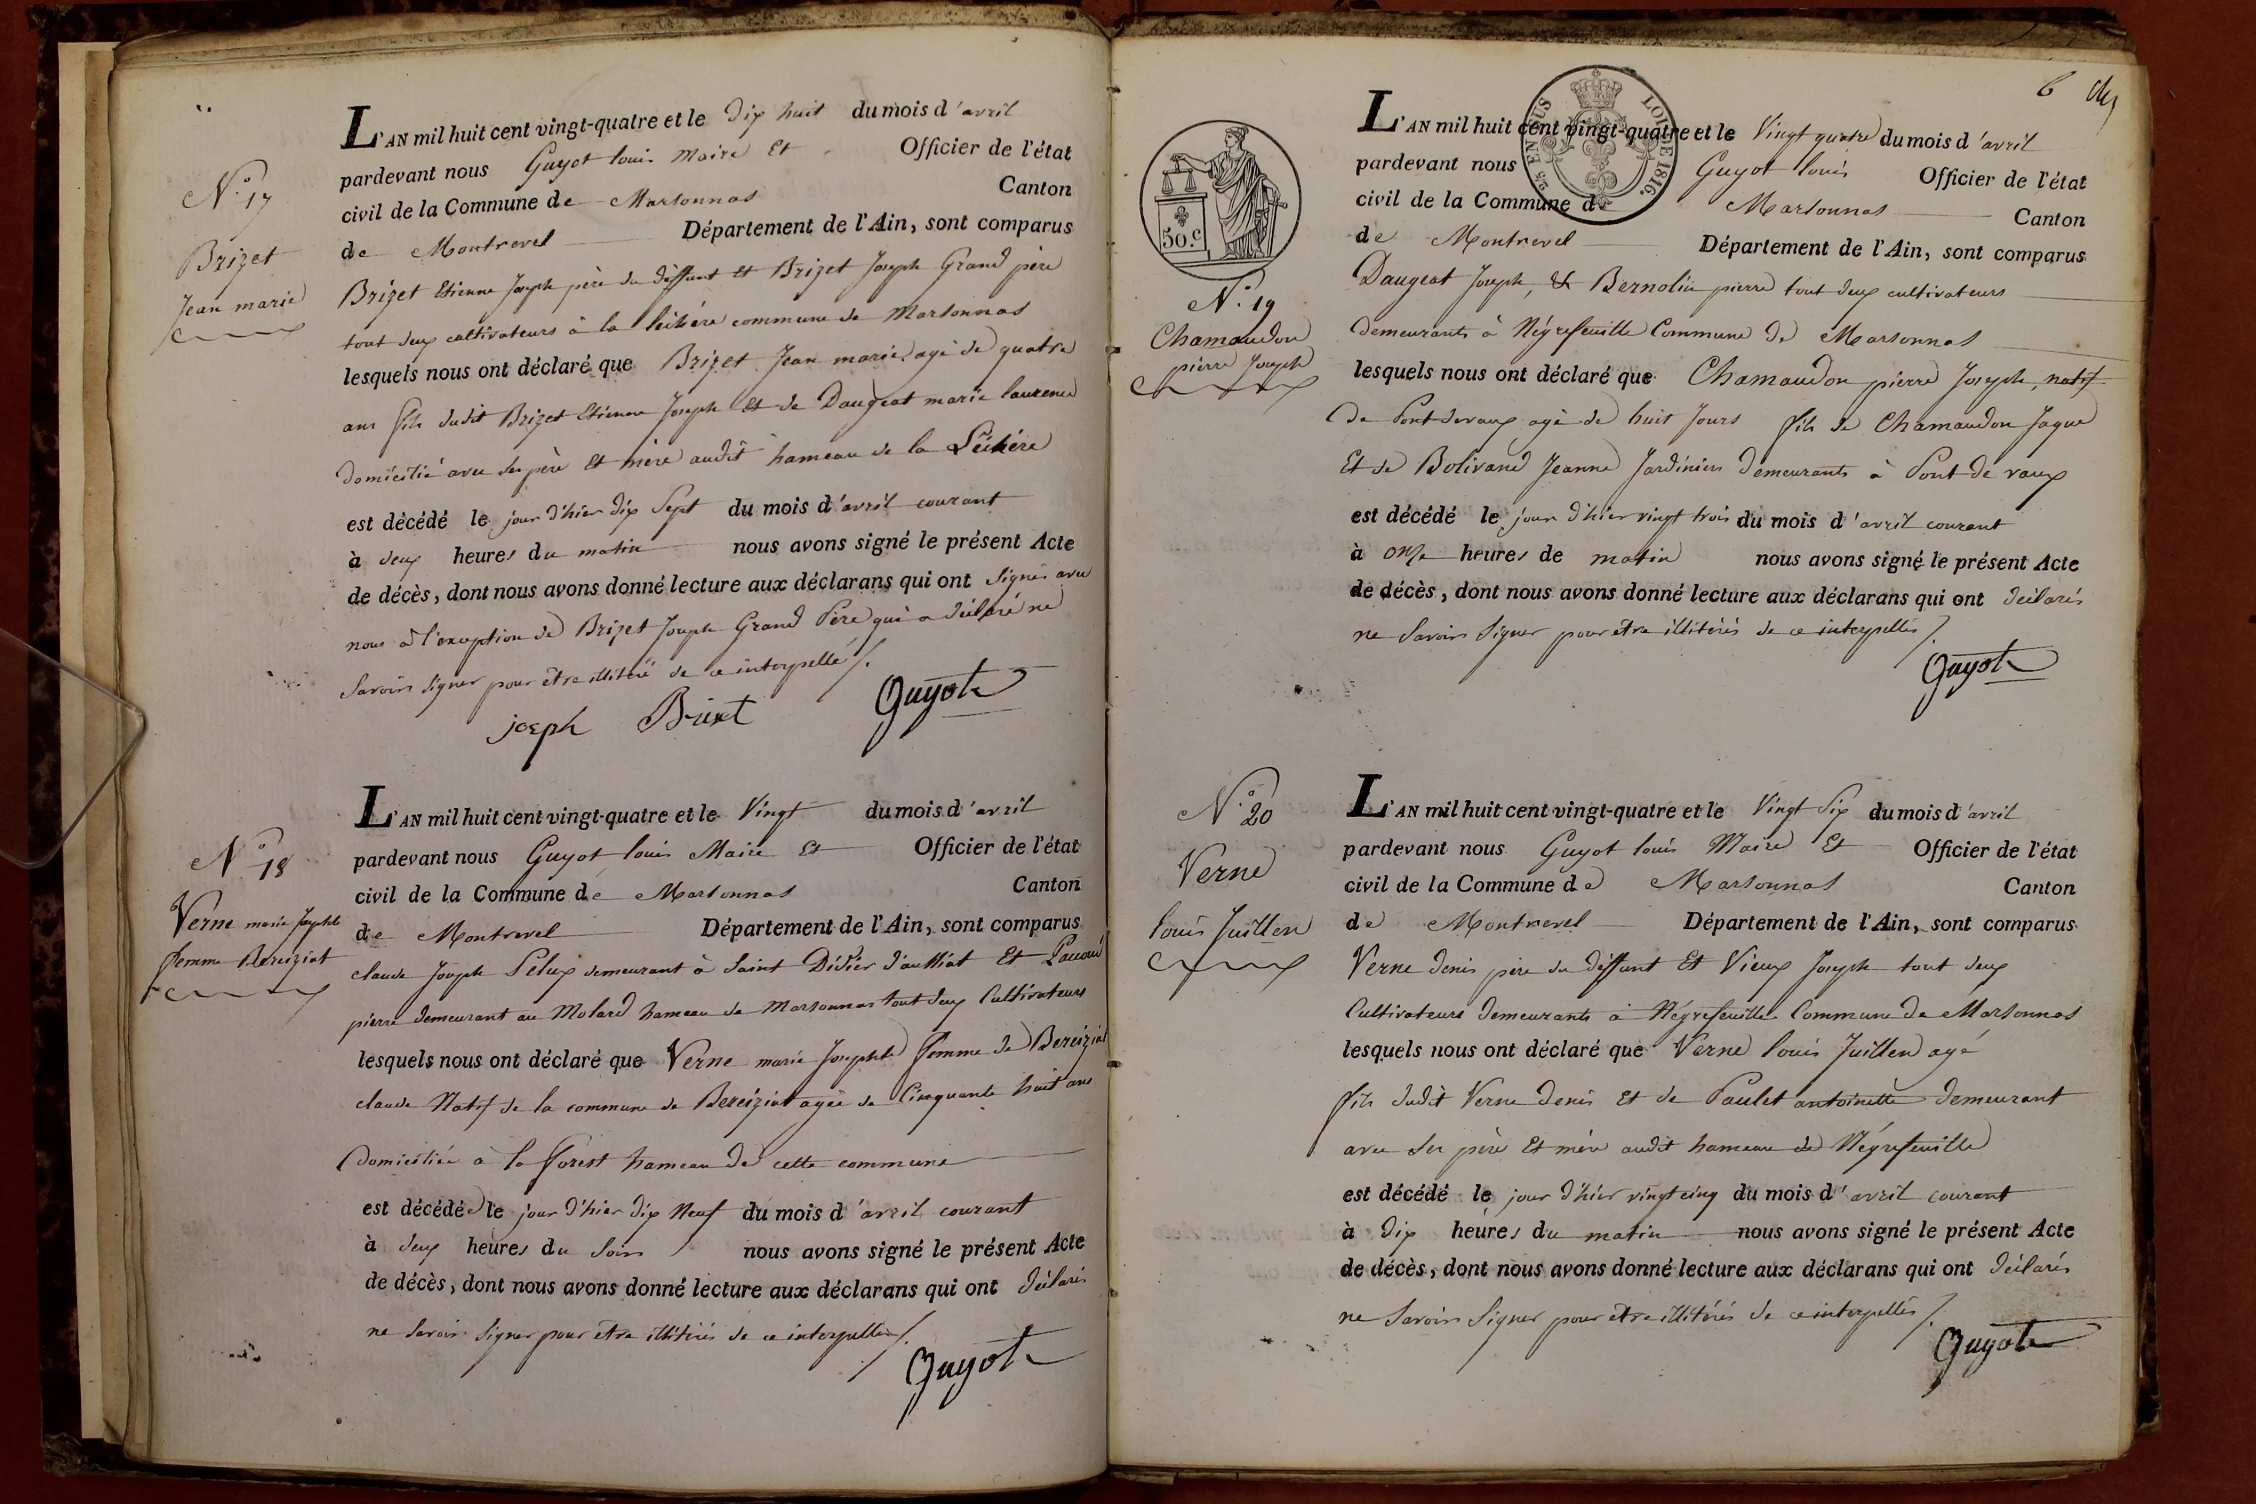 L'AN mil huit cent vingt-quatre et le dix huit du mois d'avril
pardevant nous Guyot louis Maire Et Officier de l'état
civil de la Commune de Marsonnas Canton
de Montrevel Département de l'Ain, sont comparus
Brizet Etienne Joseph père du deffunt Et Brizet Joseph Grand père
tout deux cultivateurs à la léchère commune de Marsonnas
lesquels nous ont déclaré que Brizet Jean marie agé de quatre
ans fils dudit Brizet Etienne Joseph Et de Daugeat marie laurence
domicilié avec ses père Et mère audit hameau de la Léchère
est décédé le jour d'hier dix Sept du mois d'avril courant
à deux heures du matin nous avons signé le présent Acte
de décès, dont nous avons donné lecture aux déclarans qui ont signés avec
nous à l'exception de Brizet Joseph Grand Père qui a déclaré ne
Savoir signer pour être illitéré de ce interpellé /.
joseph Brizet Guyot
N.o 17
Brizet
Jean marie
L'AN mil huit cent vingt-quatre et le Vingt du mois d'avril
pardevant nous Guyot louis Maire Et Officier de l'état
civil de la Commune de Marsonnas Canton
de Montrevel Département de l'Ain, sont comparus
claude Joseph Pelux demeurant à Saint Didier d'aussiat Et
pierre demeurant au Molard hameau de Marsonnas tout deux Cultivateurs
lesquels nous ont déclaré que Verne marie Josephte femme de Bereiziat
claude Natif de la commune de Bereiziat agée de Cinquante huit ans
Domiciliée à la Forest hameau de cette commune
est décédée le jour d'hier dix Neuf du mois d'avril courant
à deux heures du Soir nous avons signé le présent Acte
de décès, dont nous avons donné lecture aux déclarans qui ont déclarés
ne Savoir signer pour être illitérés de ce interpellés /.
Guyot
N.o 18
Verne marie Josephte
femme Bereiziat
6
L'AN mil huit cent vingt-quatre et le Vingt quatre du mois d'avril
pardevant nous Guyot louis Officier de l'état
civil de la Commune de Marsonnas Canton
de Montrevel Département de l'Ain, sont comparus
Daugeat Joseph, & Bernolin pierre tout deux cultivateurs
demeurants à Négrefeuille Commune de Marsonnas
lesquels nous ont déclaré que Chamaudon pierre Joseph, natif
de Pontdevaux agé de huit Jours fils de Chamaudon Jaque
Et de Bolivand Jeanne Jardiniers Demeurants à Pont-de vaux
est décédé le jour d'hier vingt trois du mois d'avril courant
à onze heures de matin nous avons signé le présent Acte
de décès, dont nous avons donné lecture aux déclarans qui ont déclarés
ne Savoir Signer pour être illitérés de ce interpellés /.
Guyot
25 EN SUS LOI DE 1816.
50.c
N.o 19
Chamaudon
pierre Joseph
L'AN mil huit cent vingt-quatre et le Vingt Six du mois d'avril
pardevant nous Guyot louis Maire Et Officier de l'état
civil de la Commune de Marsonnas Canton
de Montrevel Département de l'Ain, sont comparus
Verne denis père du deffunt Et Vieux Joseph tout deux
Cultivateurs demeurants à Négrefeuille Commune de Marsonnas
lesquels nous ont déclaré que Verne louis Juillen agé
fils dudit Verne Denis Et de Paulet antoinette Demeurant
avec ses père Et mère audit hameau de Négrefeuille
est décédé le jour d'hier vingt cinq du mois d'avril courant
à dix heures du matin nous avons signé le présent Acte
de décès, dont nous avons donné lecture aux déclarans qui ont déclarés
ne Savoir Signer pour être illitérés de ce interpellés /.
Guyot
N.o 20
Verne
louis Juillen